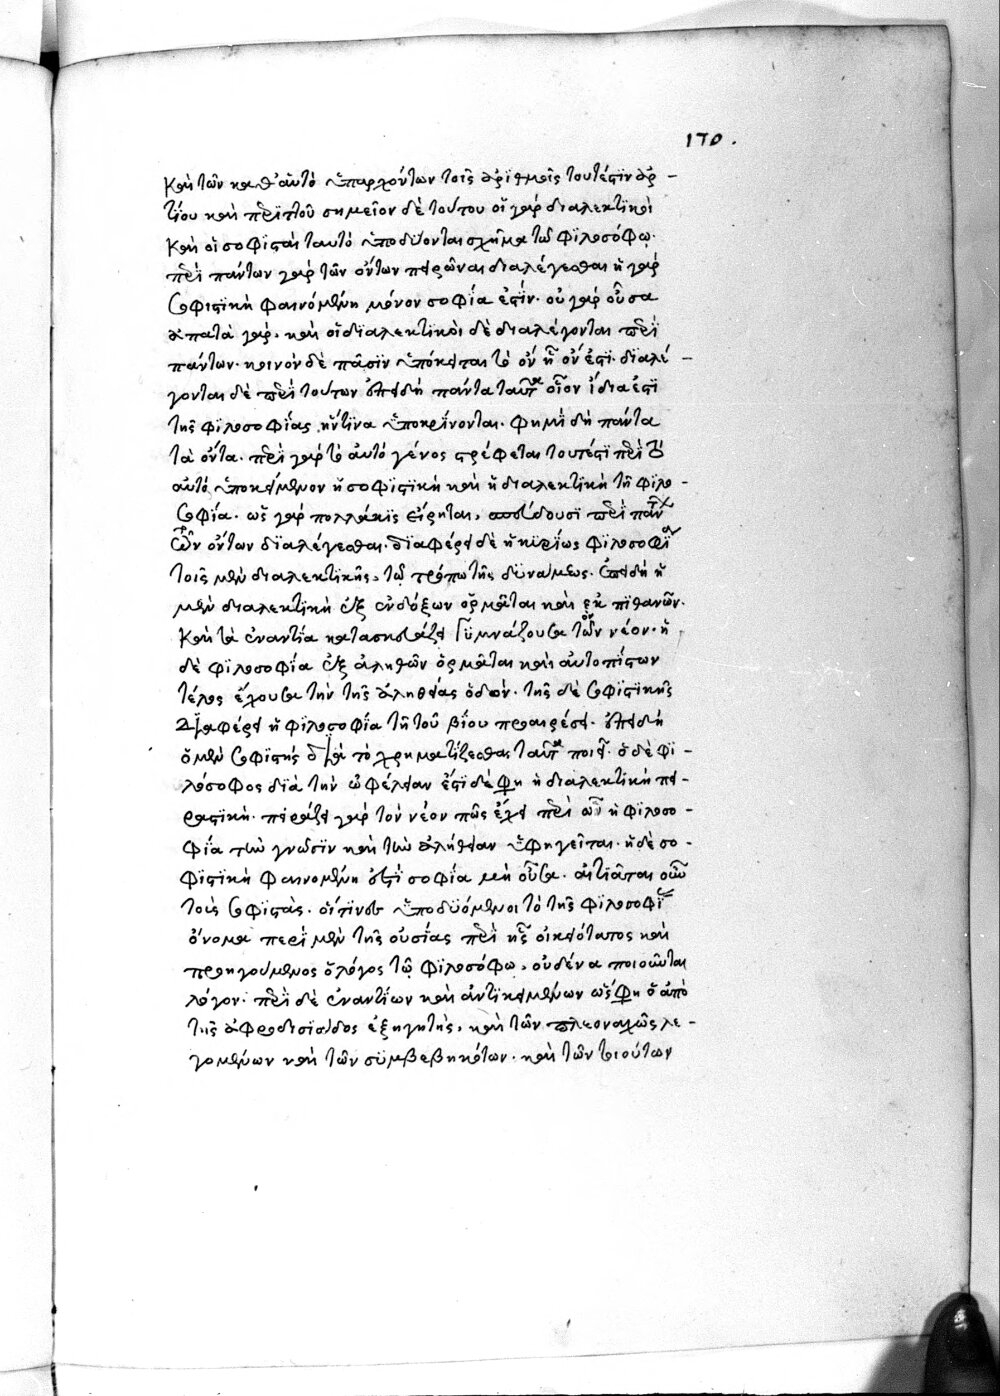 170.
καὶ τῶν καθ' αὑτὸ ὑπαρχόντων τοῖς ἀριθμοῖς τουτέστιν ἀρ-
τίου καὶ περιττοῦ σημεῖον δὲ τούτου οἱ γὰρ διαλεκτικοὶ
καὶ οἱ σοφισταὶ ταυτὸ ὑποδύονται σχῆμα τῷ φιλοσόφῳ.
περὶ πάντων γὰρ τῶν ὄντων πειρῶνται διαλέγεσθαι ἡ γὰρ
σοφιστικὴ φαινομένη μόνον σοφία ἐστίν. οὐ γὰρ οὖσα
ἀπατᾷ γάρ. καὶ οἱ διαλεκτικοὶ δὲ διαλέγονται περὶ
πάντων. κοινὸν δὲ πᾶσιν ὑπόκειται τὸ ὂν ᾗ ὄν ἐστι. διαλέ-
γονται δὲ περὶ τούτων ἐπειδὴ πάντα ταῦτα οἷον ἴδια ἐστὶ
τῆς φιλοσοφίας ἥντινα ὑποκρίνονται. φημὶ δὴ πάντα
τὰ ὄντα. περὶ γὰρ τὸ αὐτὸ γένος στρέφεται τουτέστι περὶ τὸ
αὐτὸ ὑποκείμενον ἡ σοφιστικὴ καὶ ἡ διαλεκτικὴ τῇ φιλο-
σοφία. ὡς γὰρ πολλάκις εἴρηται, σπεύδουσι περὶ πάντων
τῶν ὄντων διαλέγεσθαι. διαφέρει δὲ ἡ κυρίως φιλοσοφία
τοῖς μὲν διαλεκτικῆς, τῷ τρόπῳ τῆς δυνάμεως. ἐπειδὴ ἡ
μὲν διαλεκτικὴ ἐξ ἐνδόξων ὁρμᾶται καὶ ἐκ πιθανῶν.
καὶ τὰ ἐναντία κατασκευάζει γυμνάζουσα τὸν νέον. ἡ
δὲ φιλοσοφία ἐξ ἀληθῶν ὁρμᾶται καὶ αὐτοπίστων
τέλος ἔχουσα τὴν τῆς ἀληθείας ὁδόν. τῆς δὲ σοφιστικῆς
διαφέρει ἡ φιλοσοφία τῇ τοῦ βίου προαιρέσει. ἐπειδὴ
ὁ μὲν σοφιστὴς διὰ τὸ χρηματίζεσθαι ταῦτα ποιεῖ. ὁ δὲ φι-
λόσοφος διὰ τὴν ὠφέλειαν ἔστι δέ φη ἡ διαλεκτικὴ πει-
ραστική. πειράζει γὰρ τὸν νέον πῶς ἔχει περὶ ὧν ἡ φιλοσο-
φία τὴν γνῶσιν καὶ τὴν ἀλήθειαν ὑφηγεῖται. ἡ δὲ σο-
φιστικὴ φαινομένη ἐστὶ σοφία μὴ οὖσα. αἰτιᾶται οὖν
τοὺς σοφιστάς. οἵτινες ὑποδυόμενοι τὸ τῆς φιλοσοφίας
ὄνομα περὶ μὲν τῆς οὐσίας περὶ ἧς οἰκειότατος καὶ
προηγούμενος ὁ λόγος τῷ φιλοσόφῳ, οὐδένα ποιοῦνται
λόγον. περὶ δὲ ἐναντίων καὶ ἀντικειμένων ὥς φη ὁ ἀπὸ
τῆς ἀφροδισιάδος ἐξηγητής, καὶ τῶν πλεοναχῶς λε-
γομένων καὶ τῶν συμβεβηκότων. καὶ τῶν τοιούτων